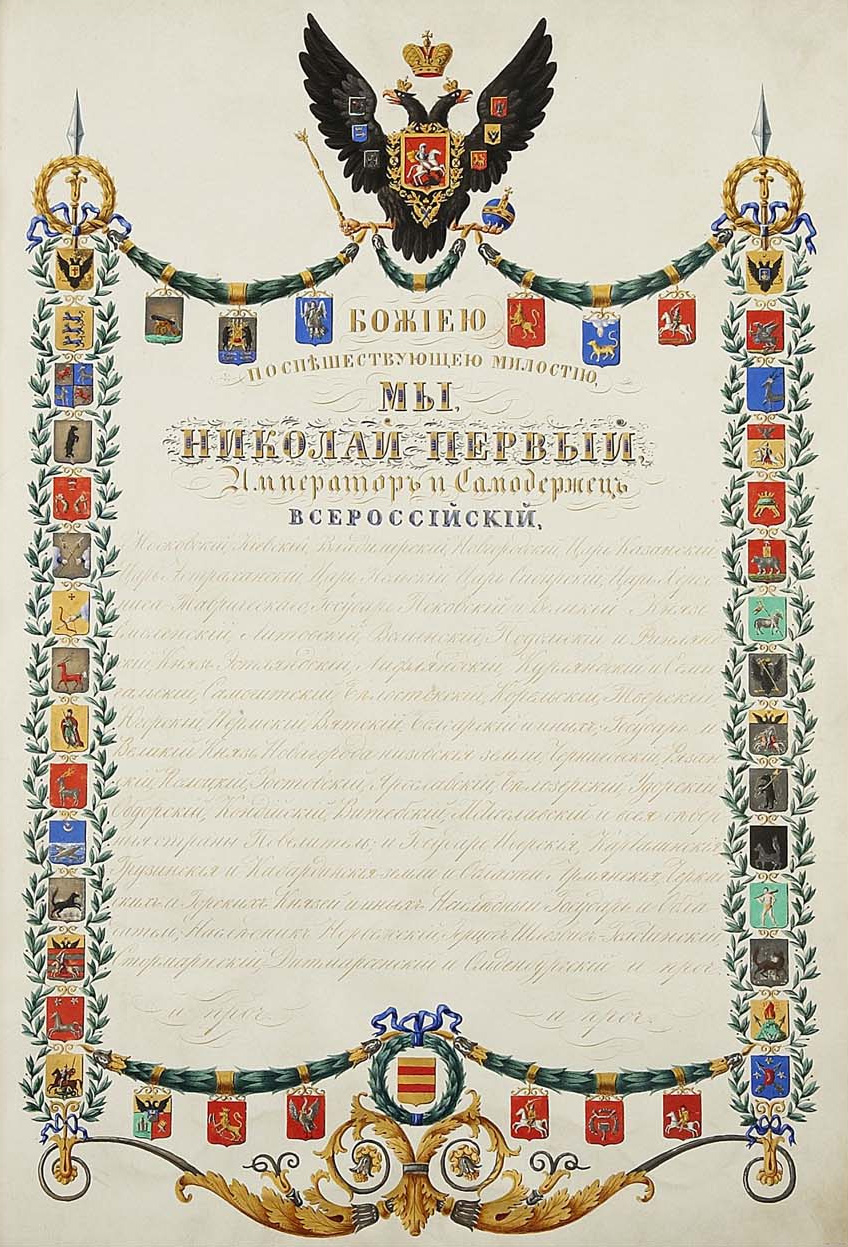 БОЖІЕЮ
ПОСПѢШЕСТВУЮЩЕЮ МИЛОСТІЮ,
МЫ,
НИКОЛАЙ ПЕРВЫЙ,
Императоръ и Самодержецъ
ВСЕРОССІЙСКІЙ,
Московскій, Кіевскій, Владимірскій, Новгородскій, Царь Казанскій
Царь Астраханскій, Царь Польскій, Царь Сибирскій, Царь Херсо
ниса-Таврическаго, Государь Псковскій и Великій Князь
Смоленскій, Литовскій, Волынскій, Подольскій и Финлянд
скій, Князь Эстляндскій, Лифляндскій, Курляндскій и Семи
гальскій, Самогитскій, Бѣлостокскій, Корельскій, Тверскій,
Югорскій, Пермскій, Вятскій, Болгарскій и иныхъ; Государь и
Великій Князь Новагорода низовскія земли, Черниговскій, Рязан
скій, Полоцкій, Ростовскій, Ярославскій, Бѣлозерскій, Удорскій
Обдорскій, Кондійскій, Витебскій, Мстиславскій и всея сѣвер
ныя страны Повелитель; и Государь Иверскія, Карталинскія
Грузинскія и Кабардинскія земли и Области Армянскія; Черкас
скихъ и Горскихъ Князей и иныхъ Наслѣдный Государь и Обла
датель, Наслѣдникъ Норвежскій, Герцогъ Шлезвигъ-Голстинскій
Стормарнскій, Дитмарсенскій и Олденбургскій и проч.
и проч. и проч.